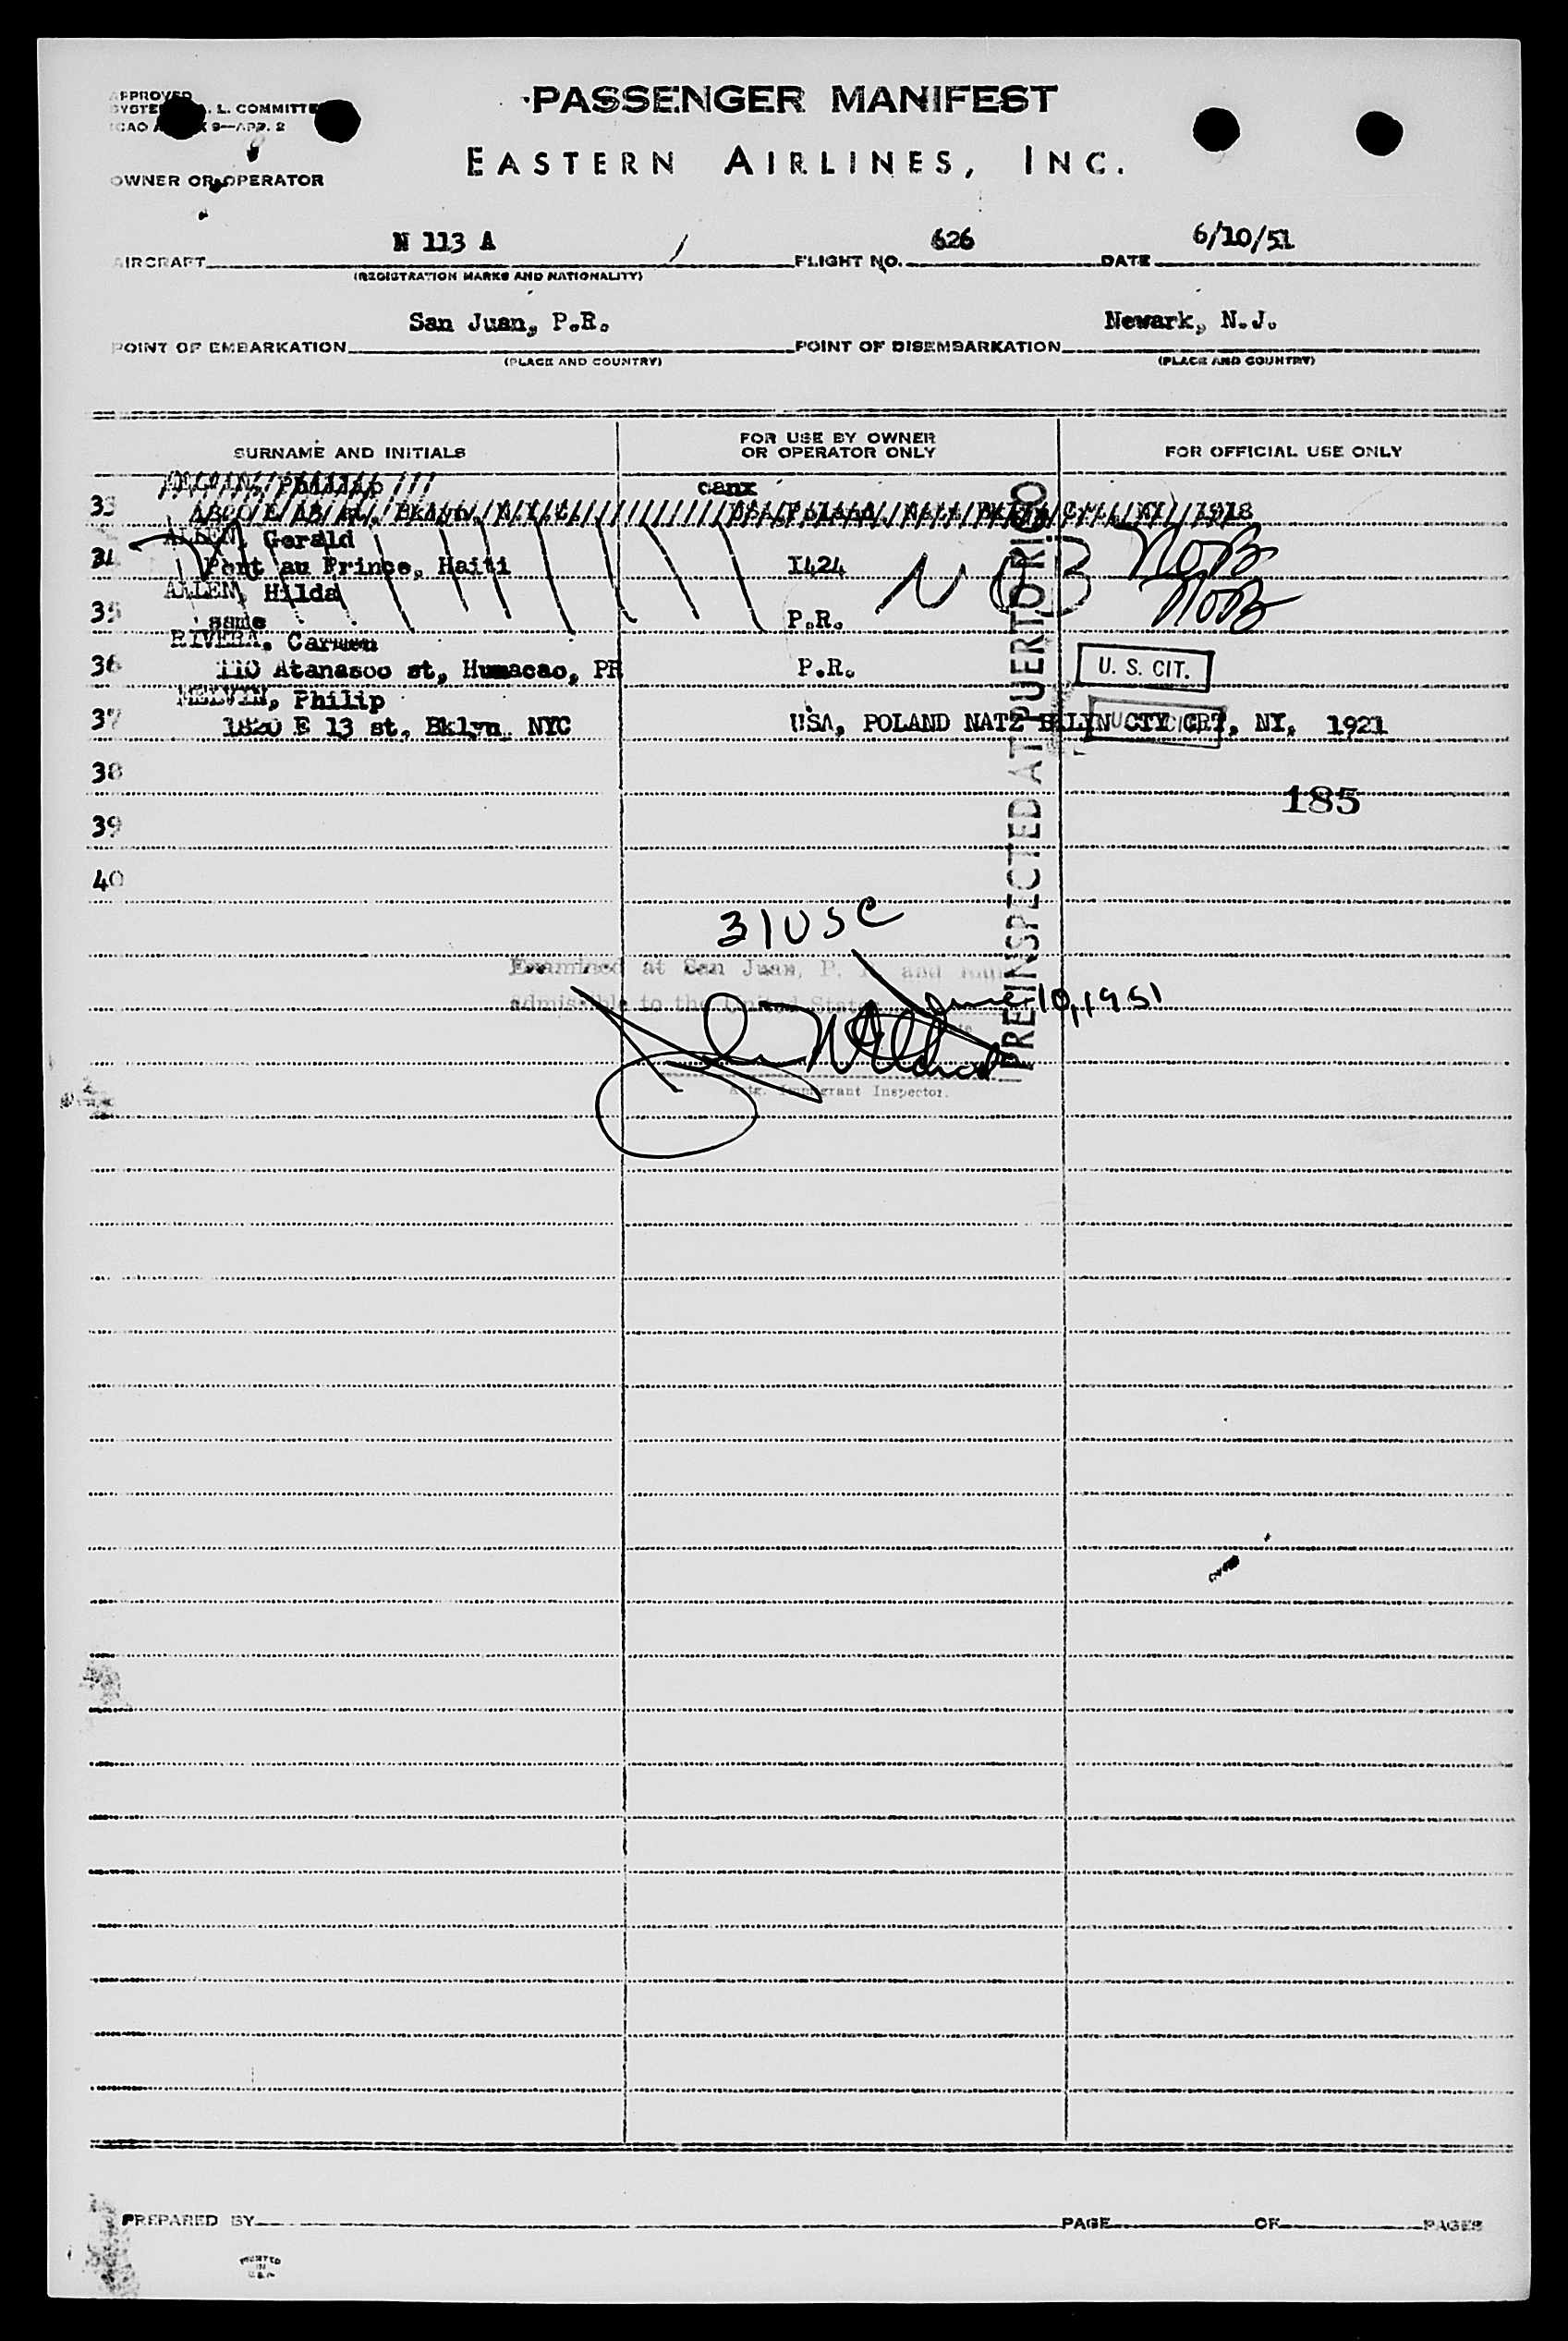 PASSENGER MANIFEST
EASTERN AIRLINES, INC.
OWNER OR OPERATOR
N 113 A 626 6/10/51
AIRCRAFT FLIGHT NO. DATE
(REGISTRATION MARKS AND NATIONALITY)
San Juan, P.R. Newark, N.J.
POINT OF EMBARKATION POINT OF DISEMBARKATION
(PLACE AND COUNTRY) (PLACE AND COUNTRY)
SURNAME AND INITIALS FOR USE BY OWNER OR OPERATOR ONLY FOR OFFICIAL USE ONLY
canx
33 1918
ALLEN, Gerald
34 Port au Prince, Haiti I424 NOB NOB
ALLEN, Hilda NOB
35 same P.R.
RIVERA, Carmen
36 110 Atanasoo st, Humacao, PR P.R. U. S. CIT.
MELVIN, Philip
37 1820 E 13 st, Bklyn NYC USA, POLAND NATZ BKLYN CTY CRT, NY, 1921
38
185
39
40
PRE-INSPECTED AT PUERTO RICO
31 USC
Examined at San Juan, P. R. and
admissible to the United States
June 10, 1951
Immigrant Inspector.
PREPARED BY PAGE OF PAGES
PRINTED
IN
U.S.A.